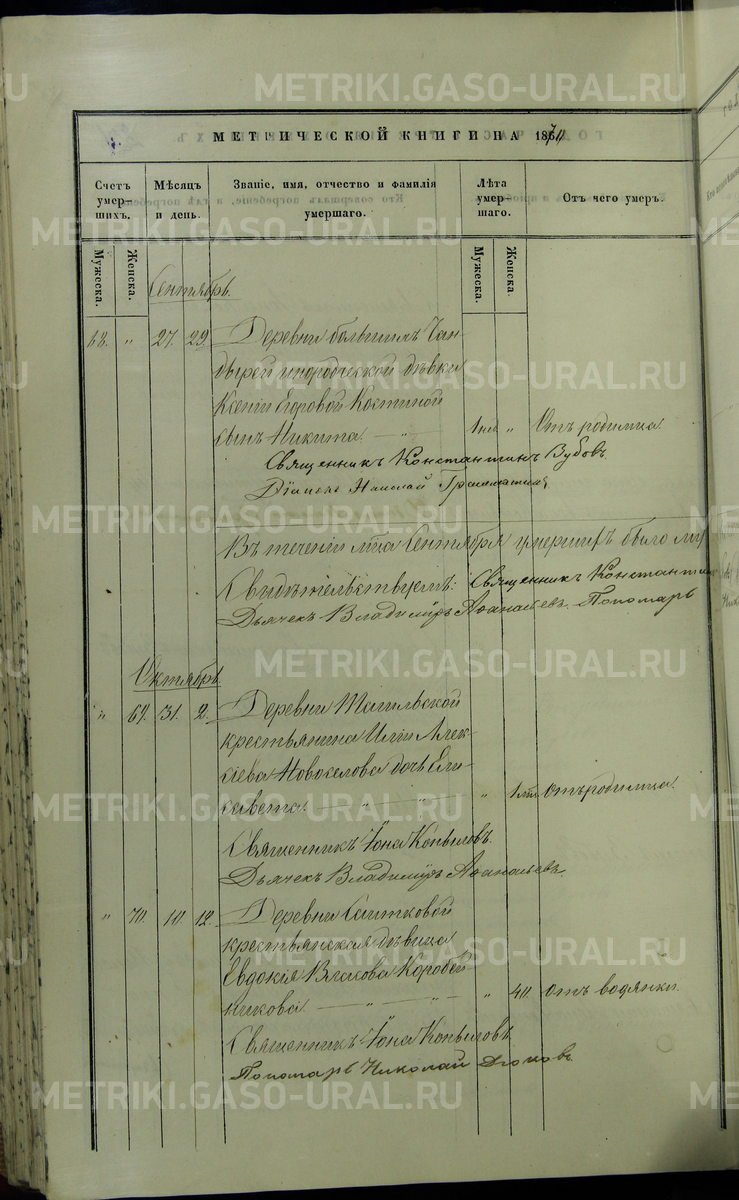 МЕТРИЧЕСКОЙ КНИГИ НА 1870
Счетъ умершихъ.
Мѣсяцъ и день.
Званіе, имя, отчество и фамилія умершаго.
Лѣта умершаго.
Отъ чего умеръ.
Мужеска.
Женска.
Мужеска.
Женска.
Сентябрь.
68. " 27. 29. Деревни большихъ
дѣвки
Ксеніи Егоровой Костиной
сынъ Никита. — " — 1 " Отъ родимца.
Священникъ Константинъ Зубовъ.
Діаконъ Николай
Въ теченіи м-ца Сентября умершихъ было
Свидѣтельствуемъ: Священникъ Константинъ
Дьячекъ Владиміръ Аѳанасьевъ. Пономарь
Октябрь.
" 69. 31. 2. Деревни Тагильской
крестьянина Иліи Алек-
сѣева Новоселова дочь Ели-
савета. — " — " — " 1 Отъ родимца.
Священникъ Іона Копыловъ.
Дьячекъ Владиміръ Аѳанасьевъ.
" 70. 10. 12. Деревни Саитковой
крестьянская дѣвица
Евдокія Коробей-
никова. — " — " — " 40. Отъ водянки.
Священникъ Іона Копыловъ
Пономарь Николай
METRIKI.GASO-URAL.RU